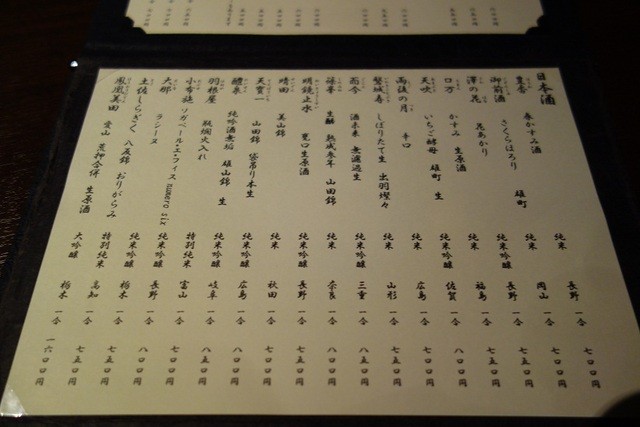 日本酒
豊香 春かすみ酒 純米 長野 一合 七〇〇円
御前酒 さくらほろり 雄町 純米 岡山 一合 七五〇円
澤の花 花あかり 純米吟醸 長野 一合 七五〇円
ロ万 かすみ 生原酒 純米吟醸 福島 一合 七五〇円
天吹 いちご酵母 雄町 生 純米吟醸 佐賀 一合 八〇〇円
雨後の月 辛口 純米 広島 一合 七〇〇円
磐城壽 しぼりたて生 出羽燦々 純米 山形 一合 七五〇円
而今 酒未来 無濾過生 純米吟醸 三重 一合 八五〇円
篠峯 生酛 熟成参年 山田錦 純米 奈良 一合 八〇〇円
明鏡止水 甕口生原酒 純米吟醸 長野 一合 七五〇円
晴田 美山錦 純米 秋田 一合 七〇〇円
天寶一 山田錦 袋吊り本生 純米 広島 一合 八〇〇円
醴泉 純吟酒無垢 雄山錦 生 純米吟醸 岐阜 一合 八五〇円
羽根屋 瓶燗火入れ 特別純米 富山 一合 七〇〇円
小布施 ソガペール・エ・フィス numero six 純米吟醸 長野 一合 八五〇円
大那 ラシーヌ 純米吟醸 栃木 一合 七五〇円
土佐しらぎく 八反錦 おりがらみ 特別純米 高知 一合 七五〇円
鳳凰美田 愛山 荒押合併 生原酒 大吟醸 栃木 一合 一六〇〇円